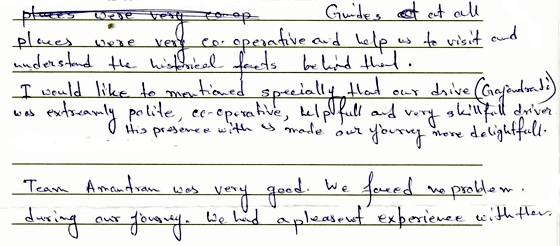 places were very co-op Guides at all
places were very co-operative and help us to visit and
understand the historical facts behind that.
I would like to mentioned specially that our drive (Gajendra Ji)
was extreamly polite, co-operative, helpfull and very skillfull driver
His presence with us made our journey more delightfull.
Team Amantran was very good. We faced no problem.
during our journey. We had a pleasent experience with them.